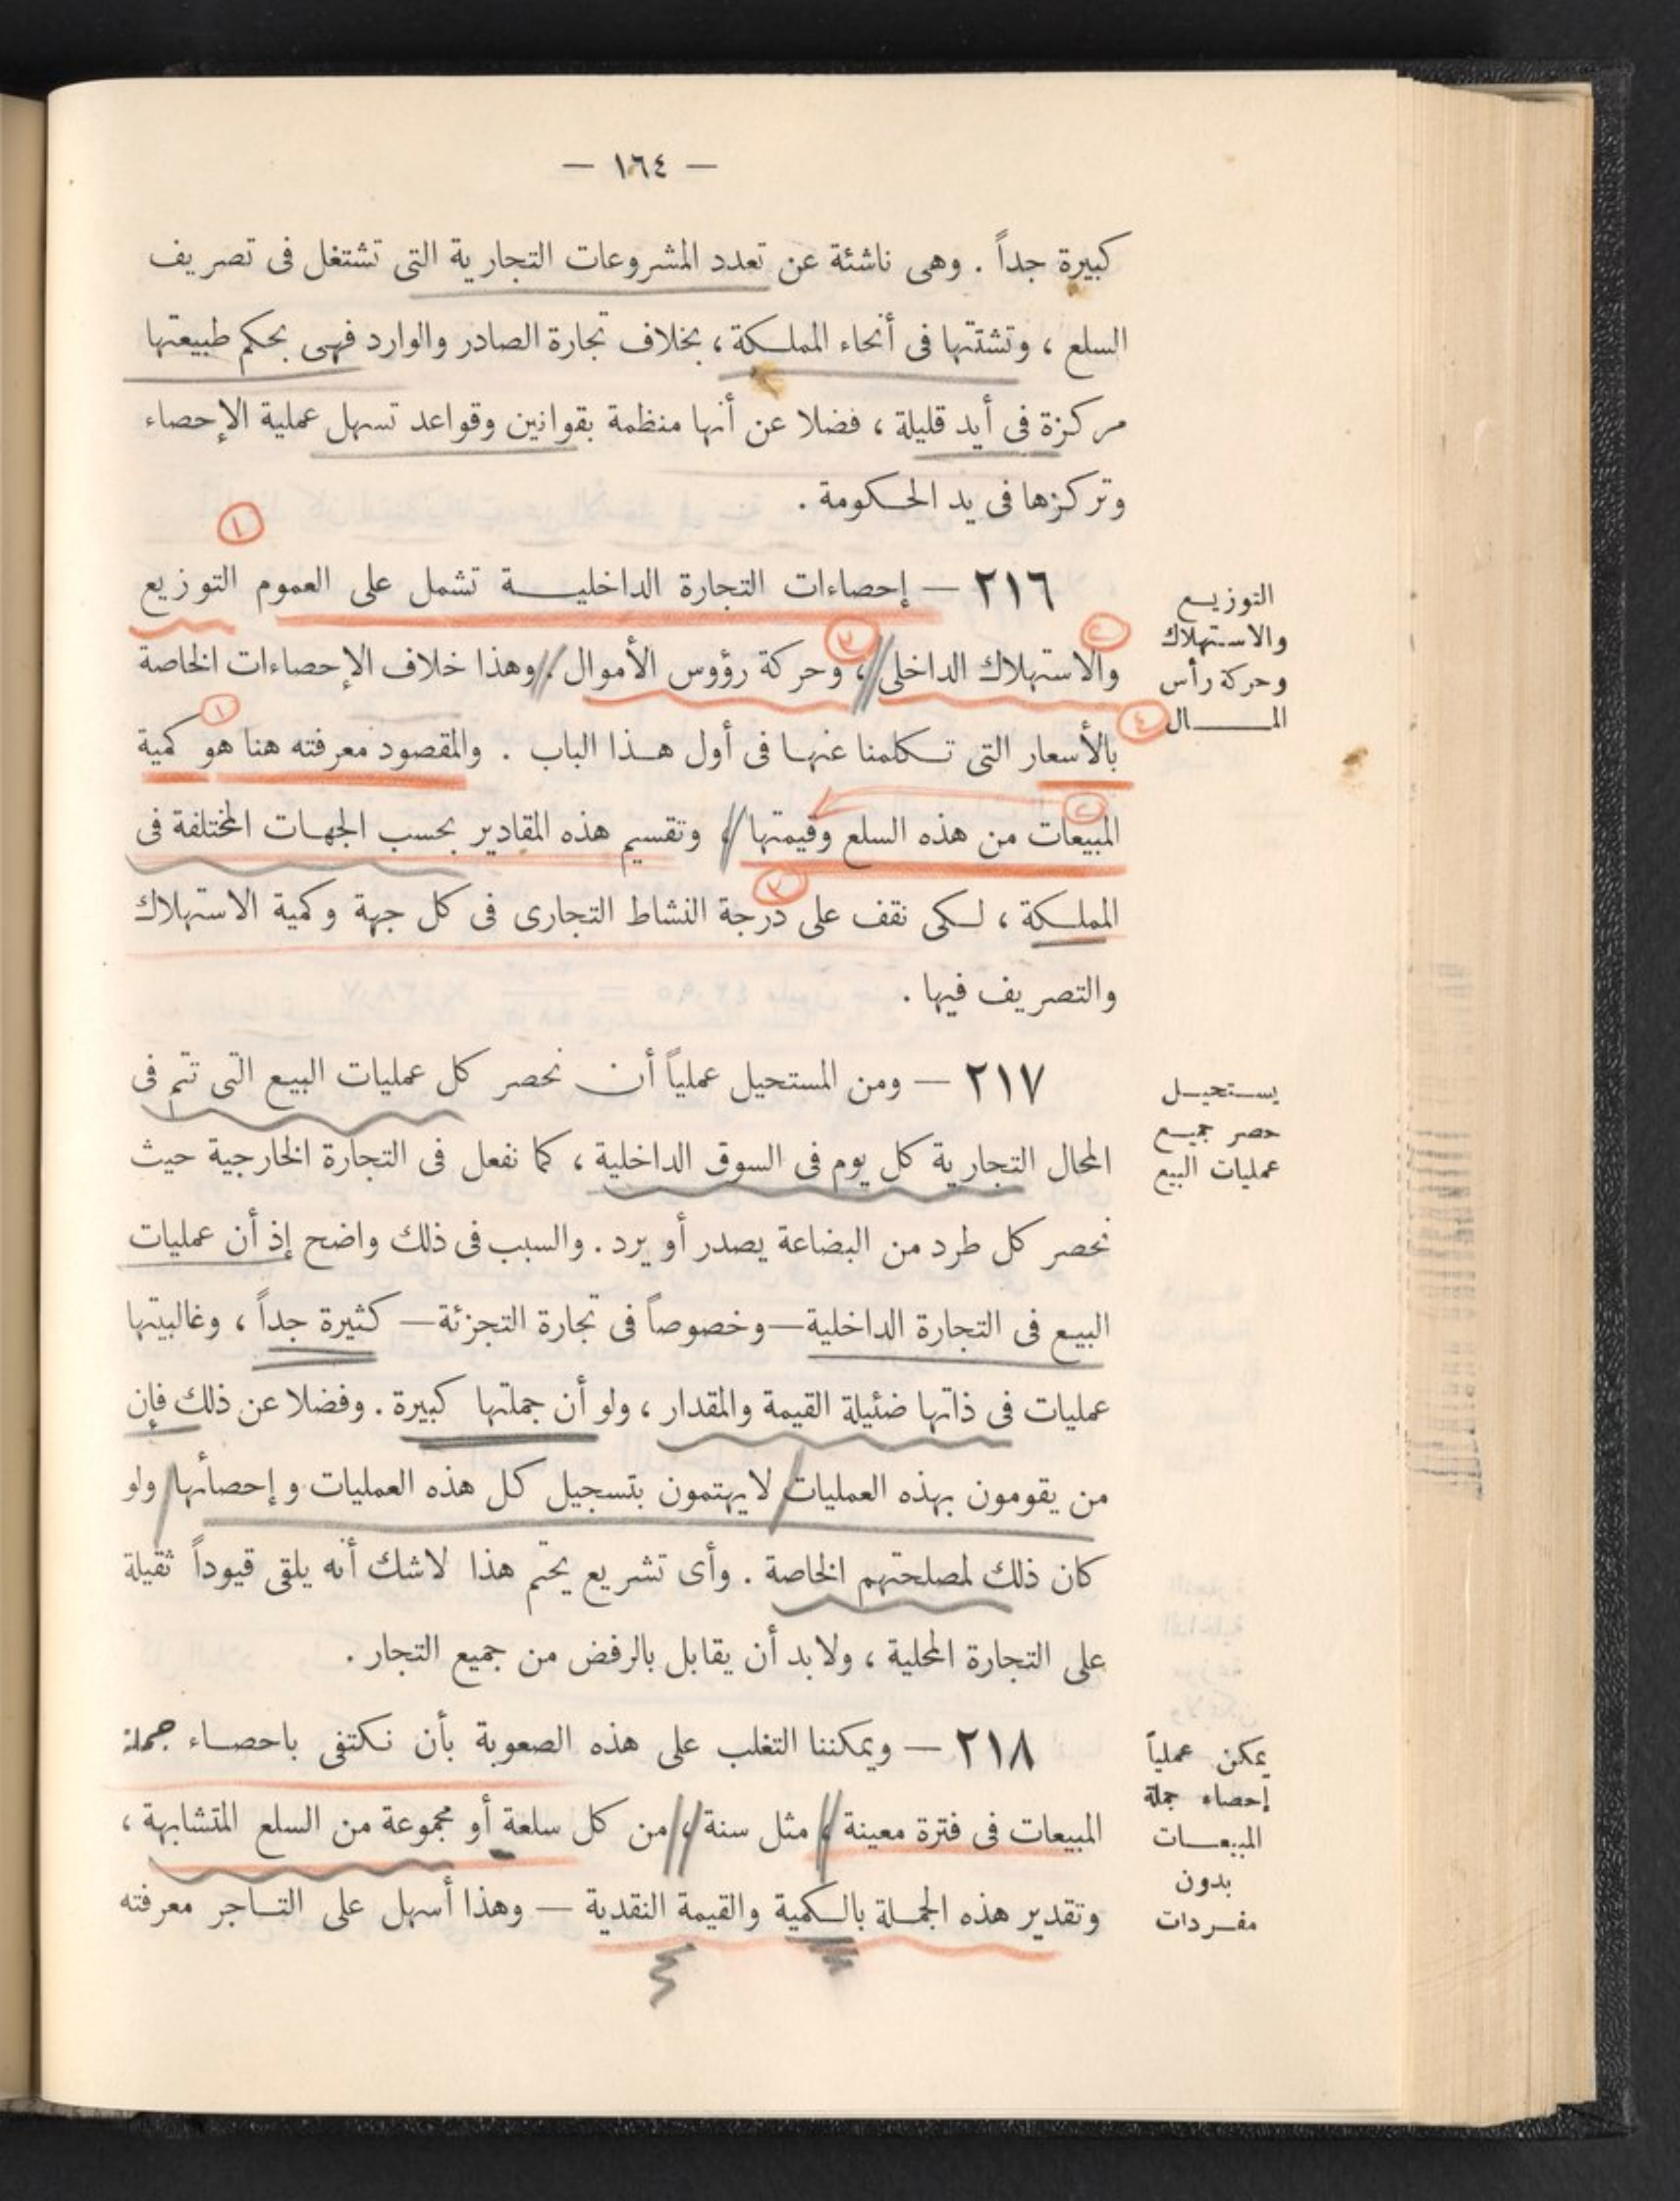 — ١٦٤ —
كبيرة جداً . وهى ناشئة عن تعدد المشروعات التجارية التى تشتغل فى تصريف
السلع ، وتشتتها فى أنحاء المملكة ، بخلاف تجارة الصادر والوارد فهى بحكم طبيعتها
مركزة فى أيد قليلة ، فضلا عن أنها منظمة بقوانين وقواعد تسهل عملية الإحصاء
وتركزها فى يد الحكومة .
١
التوزيع
والاستهلاك
وحركة رأس
المال
٢١٦ — إحصاءات التجارة الداخلية تشمل على العموم التوزيع
٢ ٣
والاستهلاك الداخلى ، وحركة رؤوس الأموال . وهذا خلاف الإحصاءات الخاصة
٤ ١
بالأسعار التى تكلمنا عنها فى أول هذا الباب . والمقصود معرفته هنا هو كمية
٢
المبيعات من هذه السلع وقيمتها ، وتقسيم هذه المقادير بحسب الجهات المختلفة فى
٣
المملكة ، لكى نقف على درجة النشاط التجارى فى كل جهة وكمية الاستهلاك
والتصريف فيها .
يستحيل
حصر جميع
عمليات البيع
٢١٧ — ومن المستحيل عملياً أن نحصر كل عمليات البيع التى تتم فى
المحال التجارية كل يوم فى السوق الداخلية ، كما نفعل فى التجارة الخارجية حيث
نحصر كل طرد من البضاعة يصدر أو يرد . والسبب فى ذلك واضح إذ أن عمليات
البيع فى التجارة الداخلية — وخصوصاً فى تجارة التجزئة — كثيرة جداً ، وغالبيتها
عمليات فى ذاتها ضئيلة القيمة والمقدار ، ولو أن جملتها كبيرة . وفضلا عن ذلك فإن
من يقومون بهذه العمليات لا يهتمون بتسجيل كل هذه العمليات وإحصائها ولو
كان ذلك لمصلحتهم الخاصة . وأى تشريع يحتم هذا لاشك أنه يلقى قيوداً ثقيلة
على التجارة المحلية ، ولابد أن يقابل بالرفض من جميع التجار .
يمكن عملياً
إحصاء جملة
المبيعات
بدون
مفردات
٢١٨ — ويمكننا التغلب على هذه الصعوبة بأن نكتفى باحصاء جملة
المبيعات فى فترة معينة ، مثل سنة ، من كل سلعة أو مجموعة من السلع المتشابهة ،
وتقدير هذه الجملة بالكمية والقيمة النقدية — وهذا أسهل على التاجر معرفته